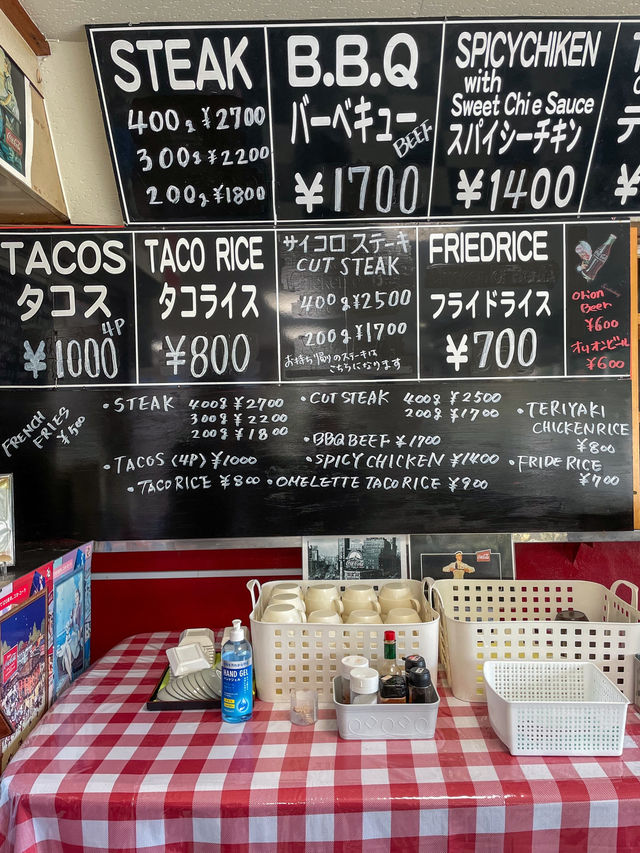 STEAK
400g ¥2700
300g ¥2200
200g ¥1800
B.B.Q
バーベキュー
BEEF
¥1700
SPICYCHIKEN
with
Sweet Chi e Sauce
スパイシーチキン
¥1400
¥
TACOS
タコス
4P
¥1000
TACO RICE
タコライス
¥800
サイコロ ステーキ
CUT STEAK
400g ¥2500
200g ¥1700
お持ち帰りのステーキは
こちらになります
FRIEDRICE
フライドライス
¥700
Orion
Beer
¥600
オリオンビール
¥600
FRENCH
FRIES
¥500
・STEAK 400g ¥2700
300g ¥2200
200g ¥1800
・TACOS (4P) ¥1000
・TACO RICE ¥800
・CUT STEAK 400g ¥2500
200g ¥1700
・BBQ BEEF ¥1700
・SPICY CHICKEN ¥1400
・OMELETTE TACO RICE ¥900
・TERIYAKI
CHICKEN RICE
¥800
・FRIDE RICE
¥700
HAND
GEL